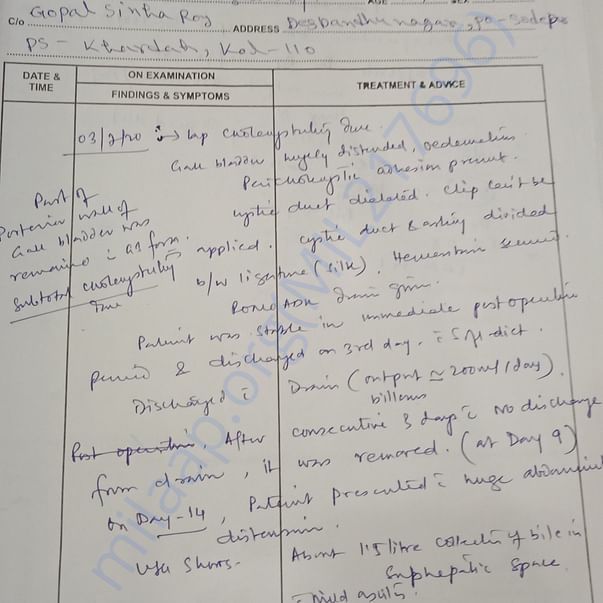 C/o Gopal Sinha Roy
ADDRESS Desbandhu nagar, po-sodepu
PS - Khardah, Kol-110
DATE & TIME
ON EXAMINATION
FINDINGS & SYMPTOMS
TREATMENT & ADVICE
03/2/20 lap cholecystectomy done.
Gall bladder hugely distended, oedematous
Pericholecystic adhesion present.
cystic duct dialated. Clip can't be
applied. cystic duct & artery divided
b/w ligature (silk). Hemostasis secured.
Romo ADK drain given.
Part of
Posterior wall of
Gall bladder was
remained
Subtotal cholecystectomy
done
Patient was stable in immediate post operative
period & discharged on 3rd day. c̄ soft diet.
Discharged c̄ Drain (output ≃ 200ml/day).
billous
Post operative. After consecutive 3 days c̄ no discharge
from drain, it was removed. (at Day 9)
on Day-14, Patient presented c̄ huge abdominal
distension.
USG Shows- About 1.5 litre collection of bile in
Subhepatic Space.
mild ascitis.
milaap.org(MIL217696)